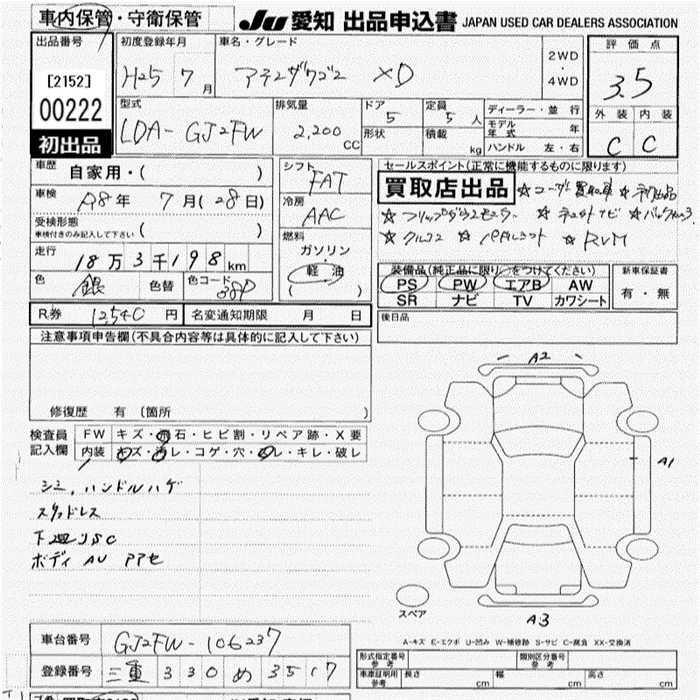 車内保管・守衛保管
JU 愛知 出品申込書 JAPAN USED CAR DEALERS ASSOCIATION
出品番号 初度登録年月 車名・グレード 評価点
[2152] H25 7月 アテンザワゴン XD 2WD・4WD 3.5
00222 型式 排気量 ドア 定員 ディーラー・並行 外装 内装
LDA-GJ2FW 2,200cc 5 5人 モデル年式 年 C C
初出品 形状 積載 kg ハンドル 左・右
車歴 自家用・( ) シフト FAT セールスポイント(正常に機能するものに限ります)
買取店出品
車検 R8年 7月(28日) 冷房 AAC
受検形態 ( )
車検付きのみ記入して下さい
燃料 ガソリン・軽油 ( )
走行 18万3千198km
☆クルコン ☆RVM
色 銀 色替 色コード 38P
装備品(純正品に限り○をつけてください) 新車保証書
PS PW エアB AW 有・無
SR ナビ TV カワシート
R券 12540円 名変通知期限 月 日 後日品
注意事項申告欄(不具合内容等は具体的に記入して下さい)
修復歴 有 (箇所 )
検査員記入欄 FW キズ・飛石・ヒビ割・リペア跡・X要
内装 キズ・汚レ・コゲ・穴・スレ・キレ・破レ
シミ,ハンドルハゲ
スタッドレス
ボディ
A2
A1
A3
スペア
A-キズ E-エクボ U-凹み W-補修跡 S-サビ C-腐食 XX-交換済
車台番号 GJ2FW-106237
登録番号 三重 330 め 3517
形式指定番号 参考 類別区分番号 参考
車庫証明用 参考 長さ cm 幅 cm 高さ cm